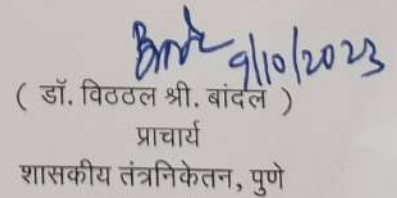 9/10/2023
( डॉ. विठठल श्री. बांदल )
प्राचार्य
शासकीय तंत्रनिकेतन, पुणे